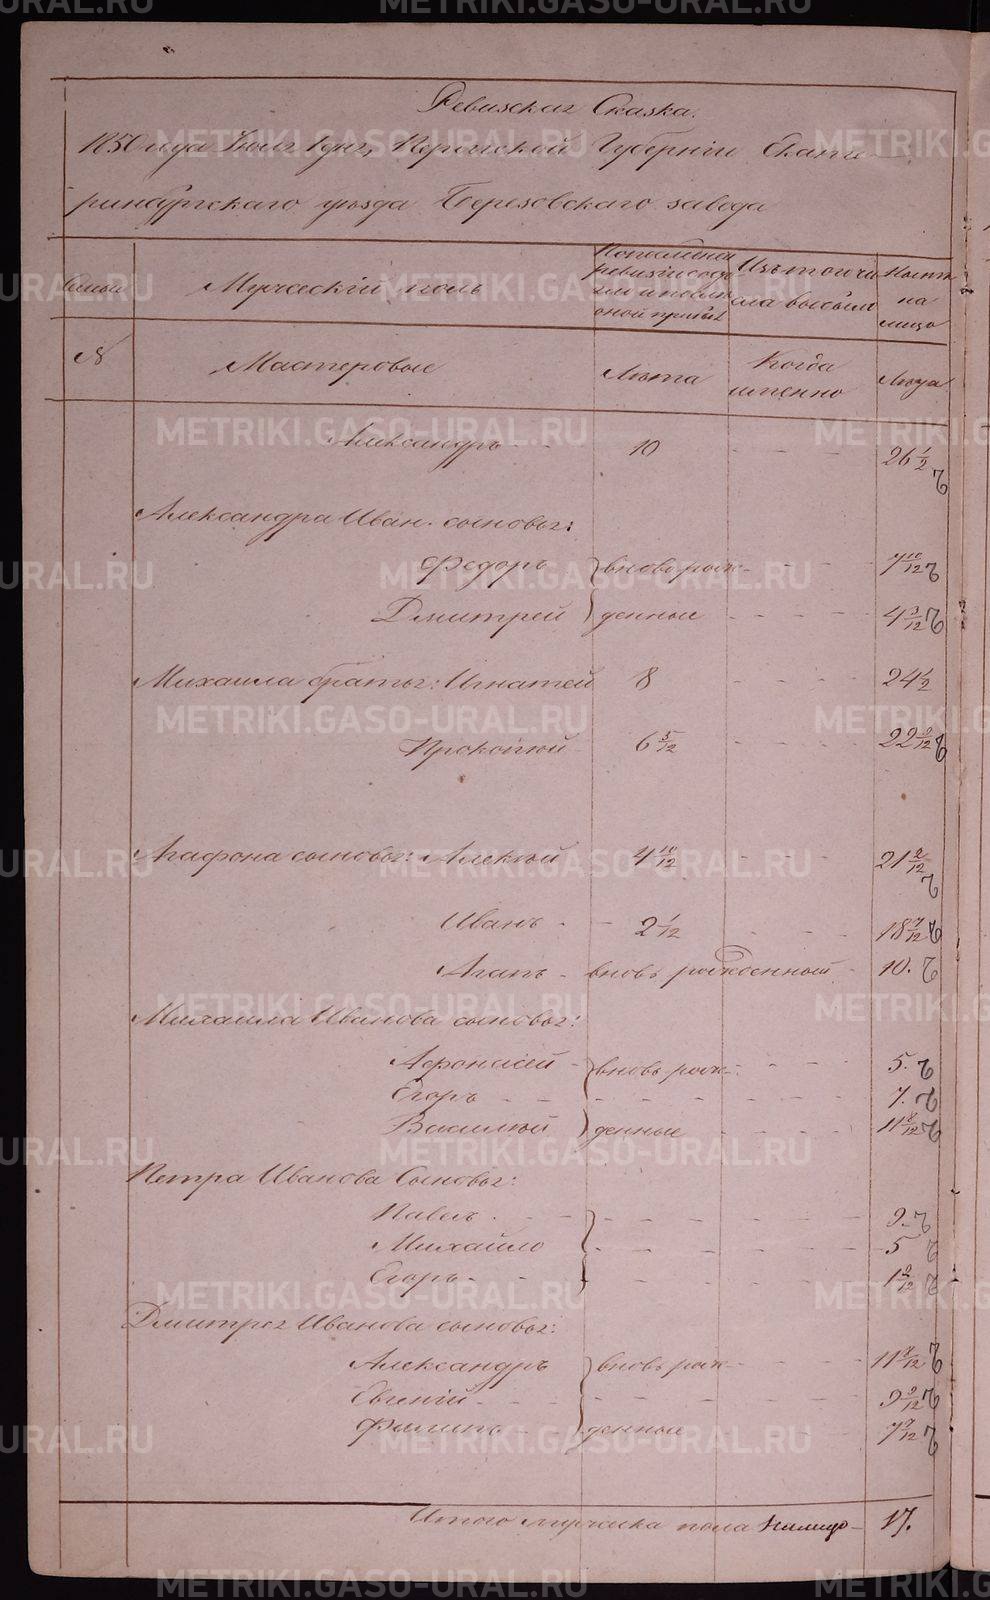 Ревизская Сказка.
1850 года Июля 1 дня, Пермской Губернiи Екате-
ринбургскаго уѣзда Березовскаго завода
Семьи
Мужескiй полъ
По последней ревизiи состояло и после оной прибыло
Изъ того числа выбыло
Ныне на лицо
№
Мастеровые
Лѣта
Когда именно
Лѣта
Александръ - - 10 - - - - 26 1/2
Александра Иван. сыновья:
Федоръ } вновь рож- - - - 7 10/12
Дмитрей } денные - - - - 4 3/12
Михаила братья: Игнатей 8 - - - - 24 1/2
Прокопiй - 6 5/12 - - - - 22 9/12
Агафона сыновья: Алексѣй 4 10/12 - - - 21 2/12
Иванъ - - 2 1/12 - - - 18 7/12
Агапъ - вновь рожденный - 10.
Михаила Иванова сыновья:
Афонасей - } вновь рож- - - - 5.
Егоръ - - - - - - - 7.
Василiй } денные - - - - 11 8/12
Петра Иванова Сыновья:
Павелъ - - - } - - - - - 9.
Михайло - - - - - - 5
Егоръ - - } - - - - - 1 2/12
Дмитрея Иванова сыновья:
Александръ } вновь рож- - - - 11 8/12
Евгенiй - - - - - - - - 9 9/12
Филипъ - - } денные - - - - 7 7/12
Итого мужеска пола налицо - 17.
METRIKI.GASO-URAL.RU